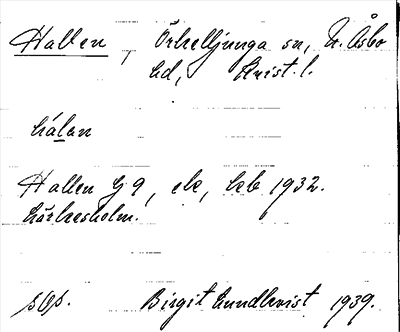 Hallen, Örkelljunga sn, N. Åsbo
hd, Krist. l.
hálan
Hallen G 9, ek, hkb 1932.
Lärkesholm.
sOs. Birgit Lundkvist 1939.